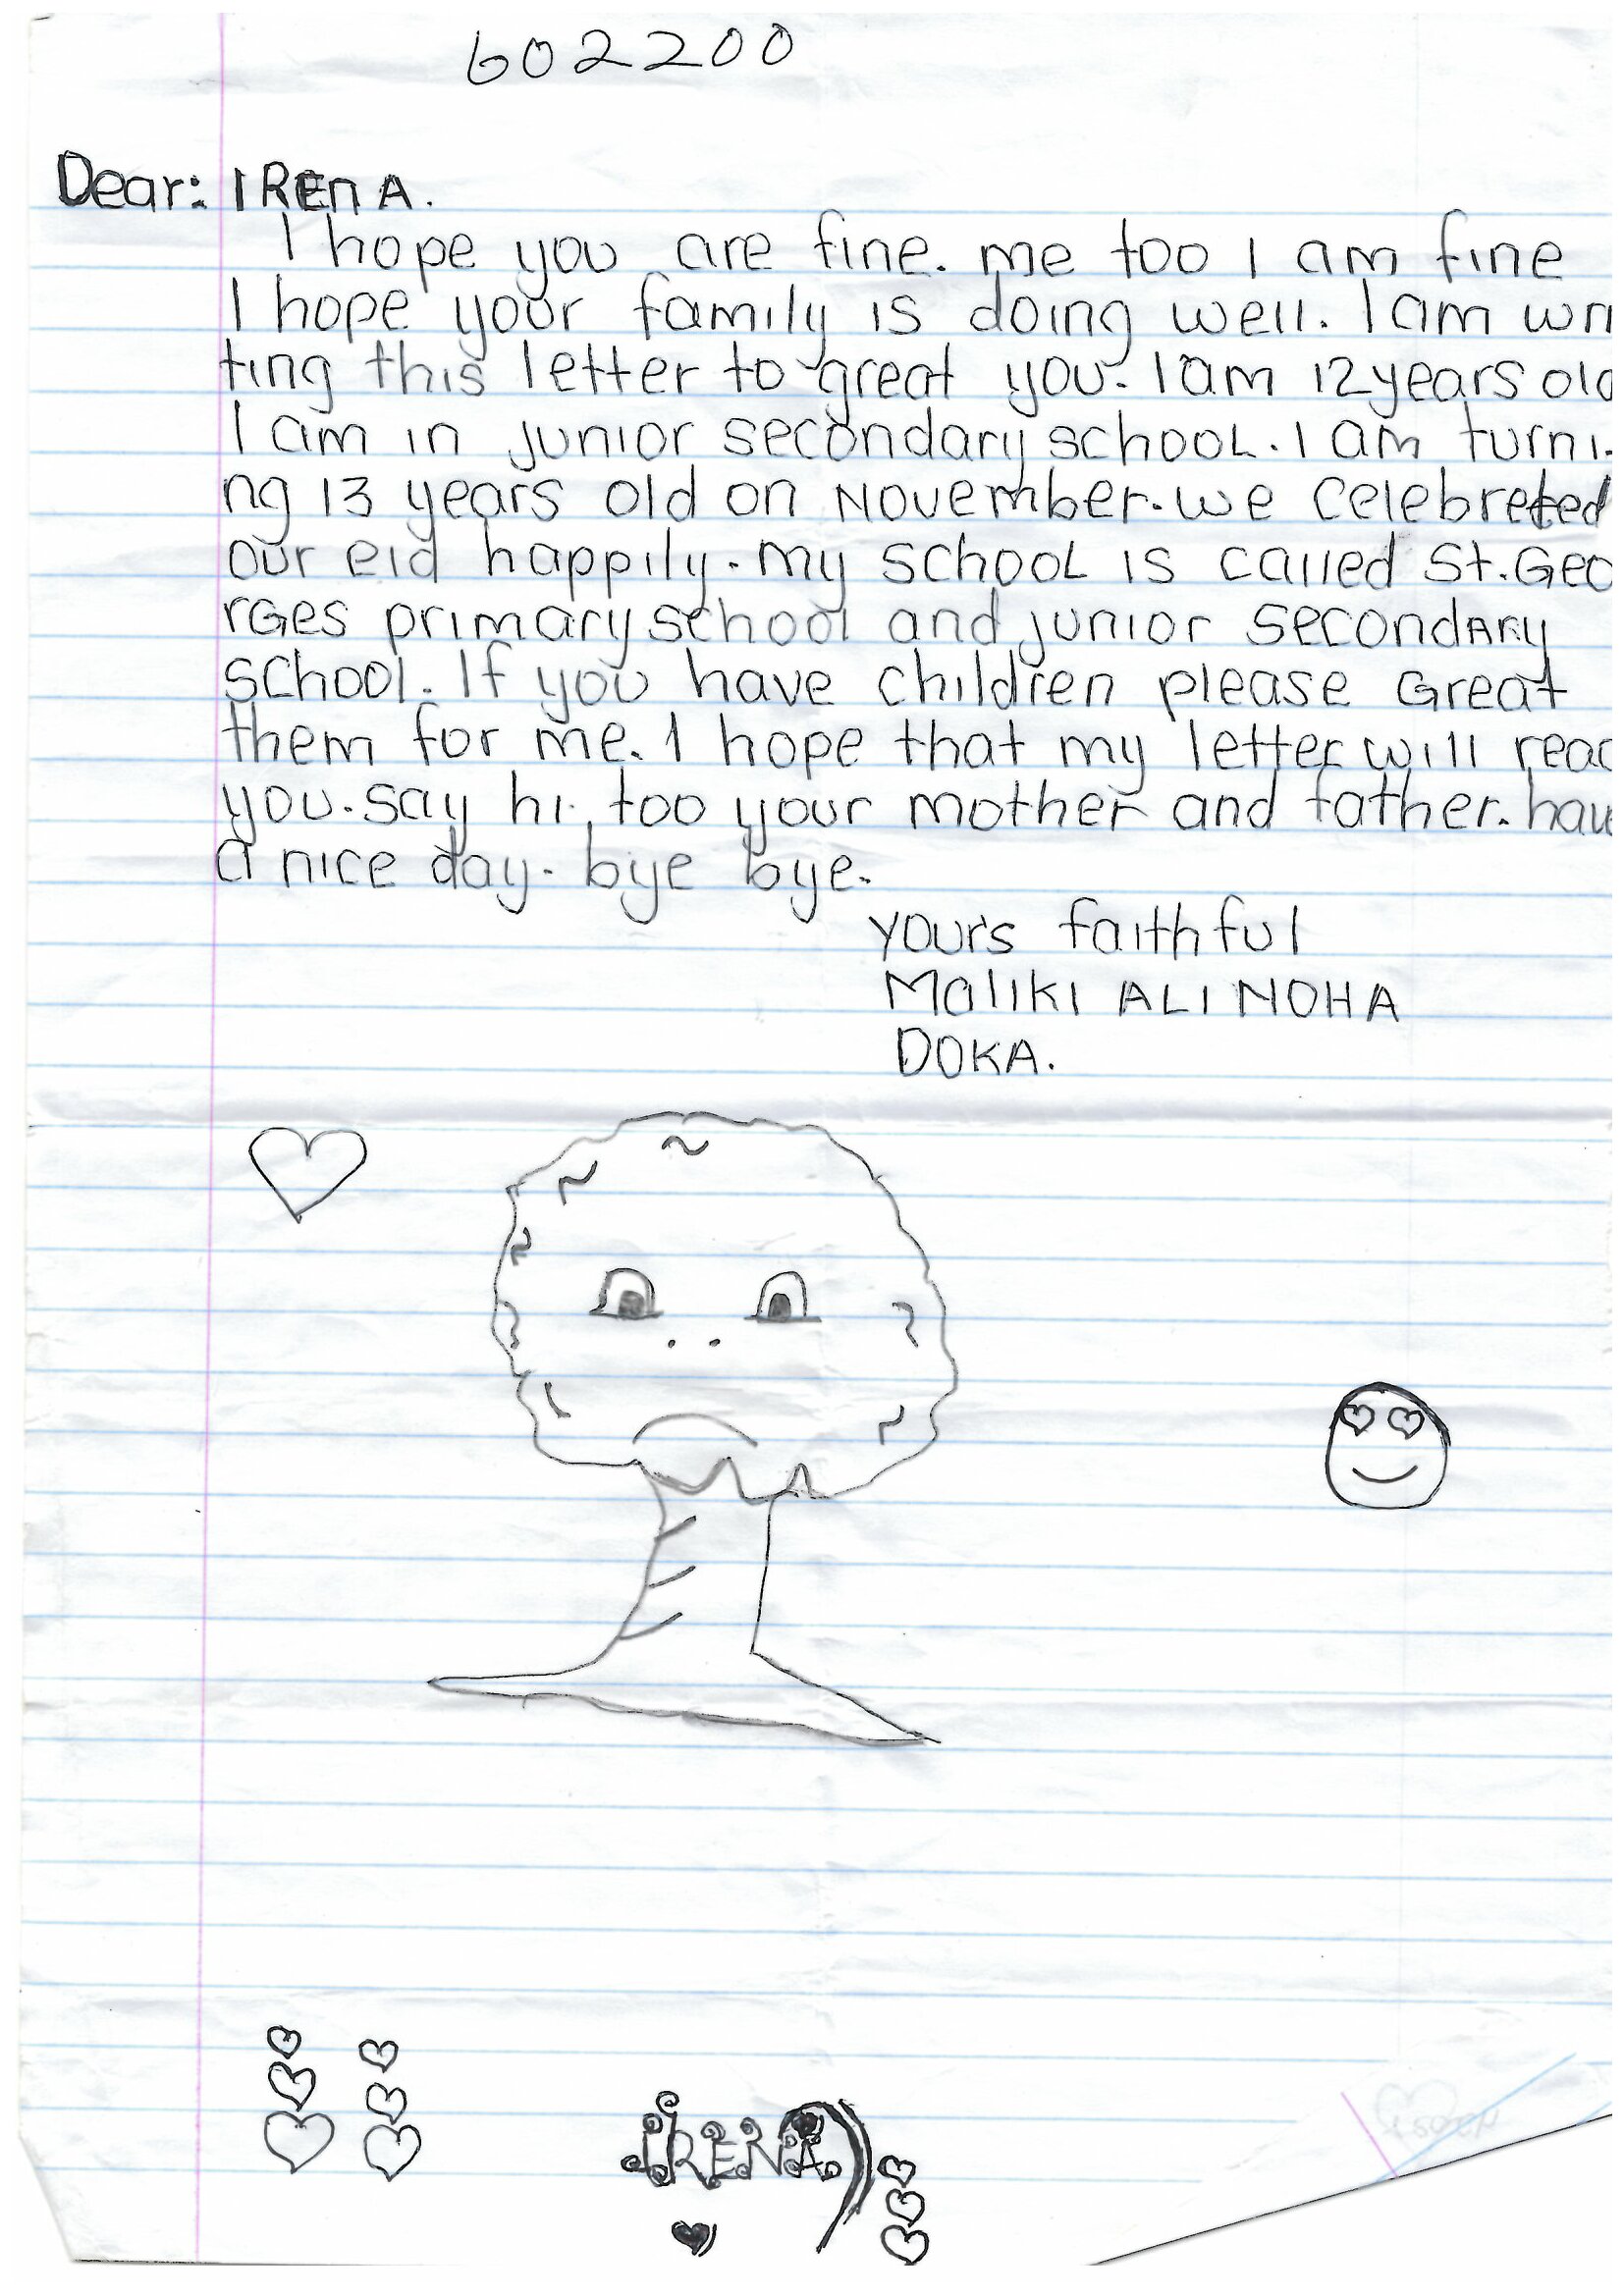 602200
Dear: IREnA.
I hope you are fine. me too I am fine
I hope your family is doing well. I am wri
ting this letter to great you. I am 12 years old
I am in junior secondary school. I am turni-
ng 13 years old on November. we celebreted
our eid happily. my school is called St. Geo
rges primary school and junior secondary
school. If you have children please Great
them for me. I hope that my letter will reac
you. say hi too your mother and father. have
a nice day. bye bye.
yours faithful
Maliki ALI NOHA
DOKA.
IRENA